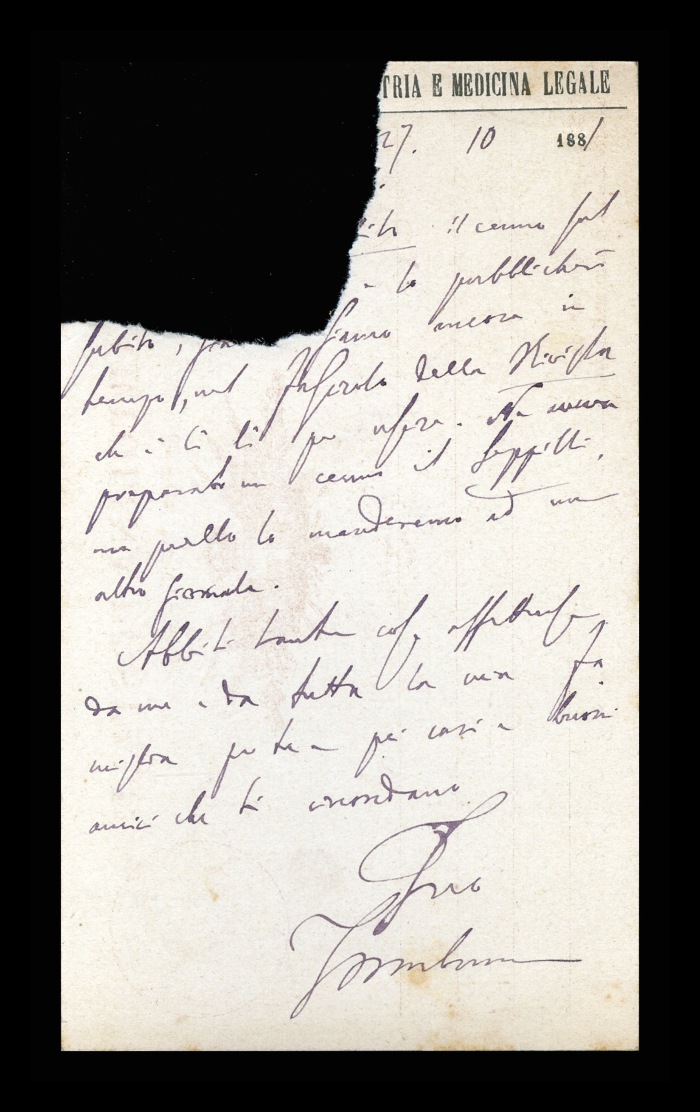 TRIA E MEDICINA LEGALE
27. 10 1881
il cenno sul
e lo pubblicherò
subito, siamo ancora in
tempo, nel fascicolo della Rivista
che è lì lì per uscire. Ne aveva
preparato un cenno il Seppilli,
ma quello lo manderemo ad un
altro giornale.
Abbiti tante cose affettuose
da me e da tutta la mia fa
miglia per te e pei cari e buoni
amici che ti circondano
Tuo
Tamburini